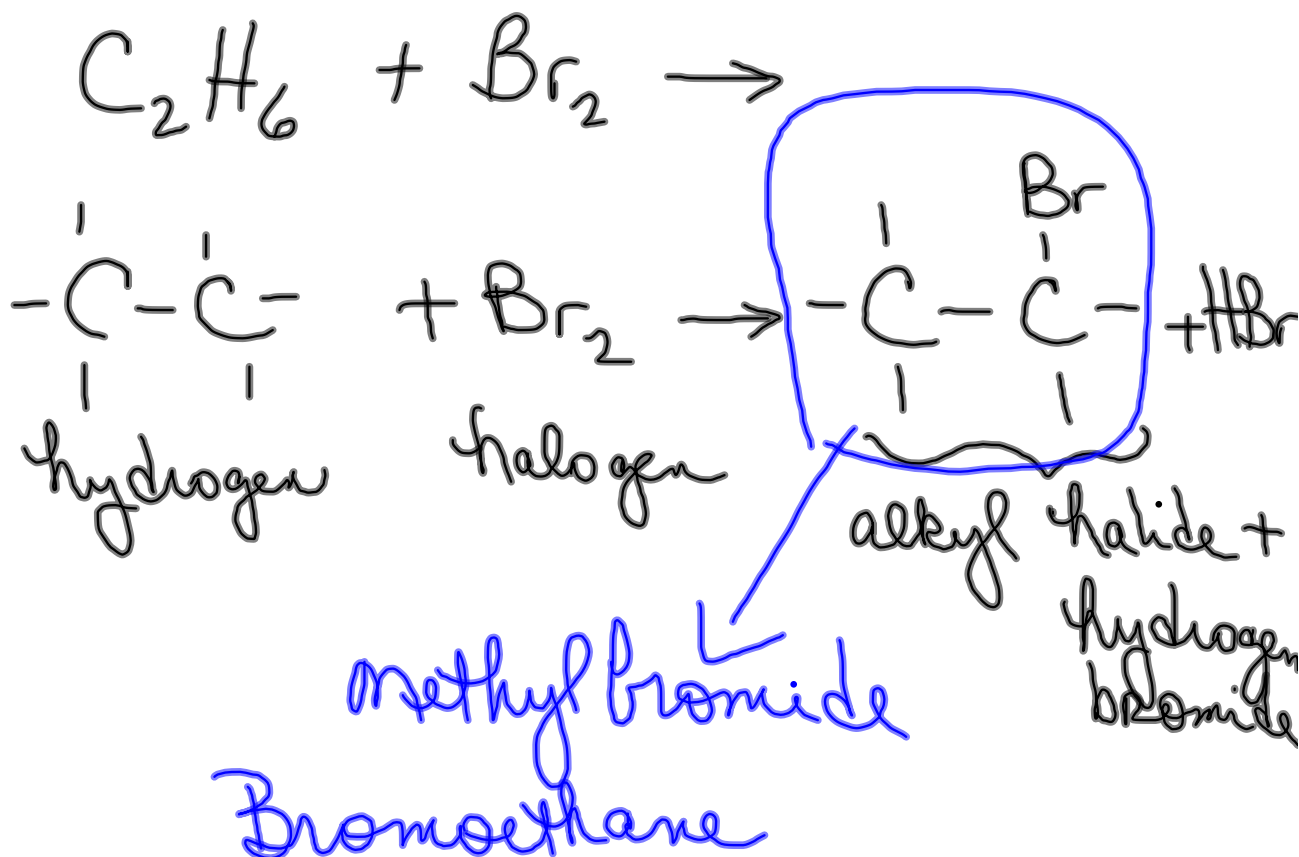 C₂H₆ + Br₂ →
Br
- C - C - + Br₂ → - C - C - + HBr
hydrogen halogen
alkyl halide +
hydrogen
bromide
Methyl bromide
Bromoethane